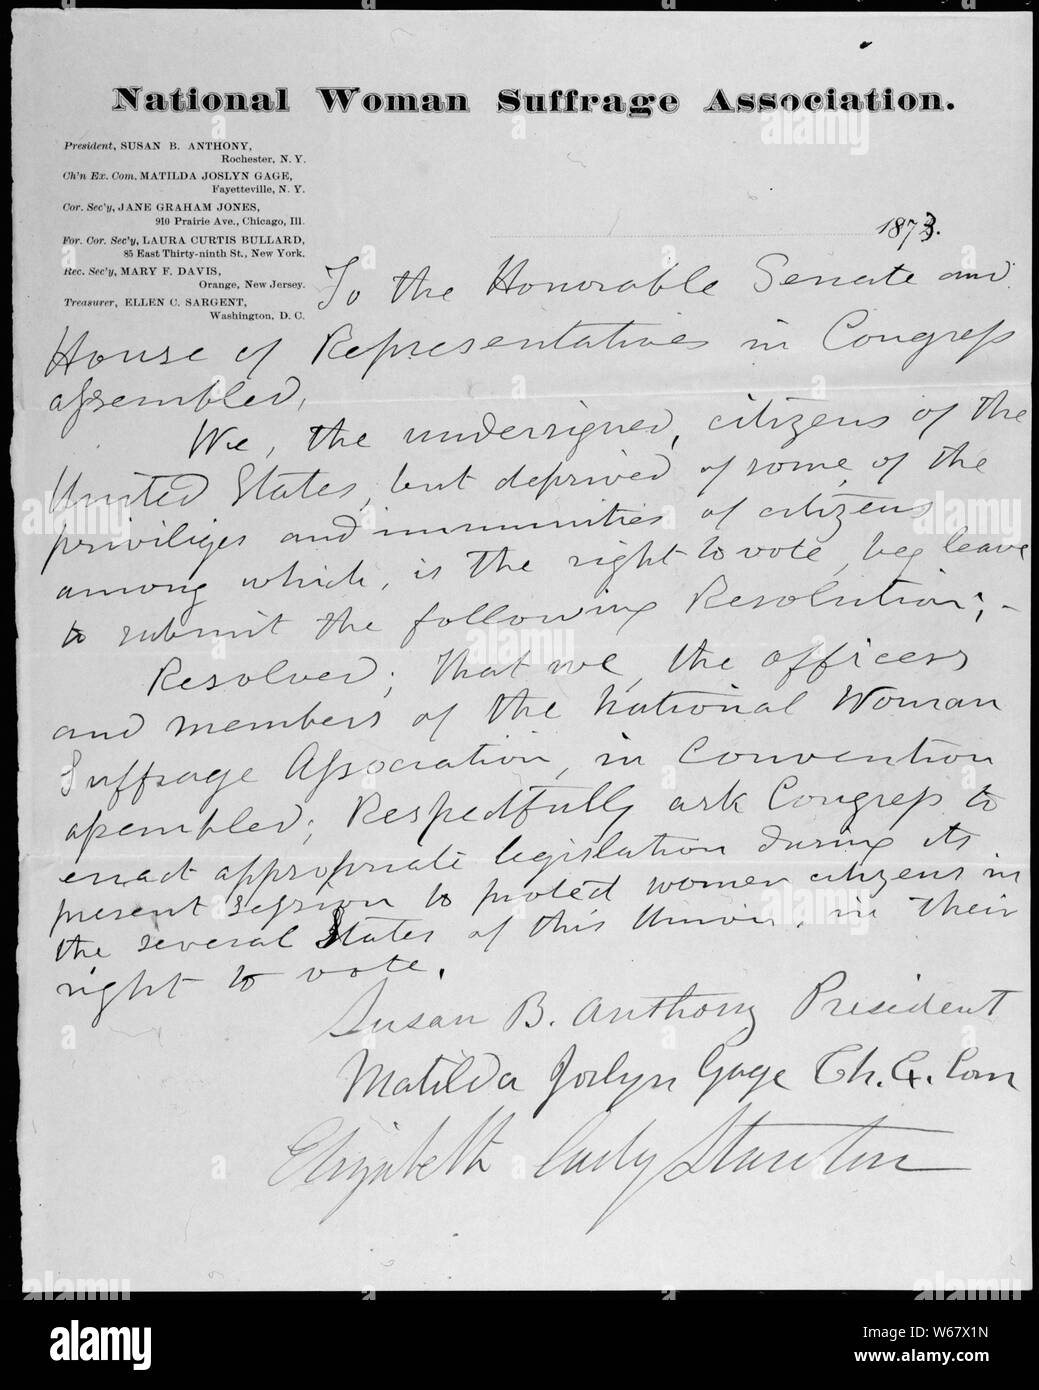 National Woman Suffrage Association.
President, SUSAN B. ANTHONY,
Rochester, N. Y.
Ch'n Ex. Com. MATILDA JOSLYN GAGE,
Fayetteville, N. Y.
Cor. Sec'y, JANE GRAHAM JONES,
910 Prairie Ave., Chicago, Ill.
For. Cor. Sec'y, LAURA CURTIS BULLARD,
85 East Thirty-ninth St., New York.
Rec. Sec'y, MARY F. DAVIS,
Orange, New Jersey.
Treasurer, ELLEN C. SARGENT,
Washington, D. C.
1873.
To the Honorable Senate and
House of Representatives in Congress
assembled,
We, the undersigned, citizens of the
United States, but deprived of some, of the
priviliges and immunities of citizens
among which, is the right to vote, beg leave
to submit the following Resolution; -
Resolved; that we, the officers
and members of the National Woman
Suffrage Association, in Convention
assembled; Respectfully ask Congress to
enact appropriate legislation during its
present session to protect women citizens in
the several States of this Union, in their
right to vote.
Susan B. Anthony President
Matilda Joslyn Gage Ch. Ex. Com
Elizabeth Cady Stanton
alamy
alamy
alamy
alamy
alamy
alamy
alamy
alamy
Image ID: W67X1N
www.alamy.com